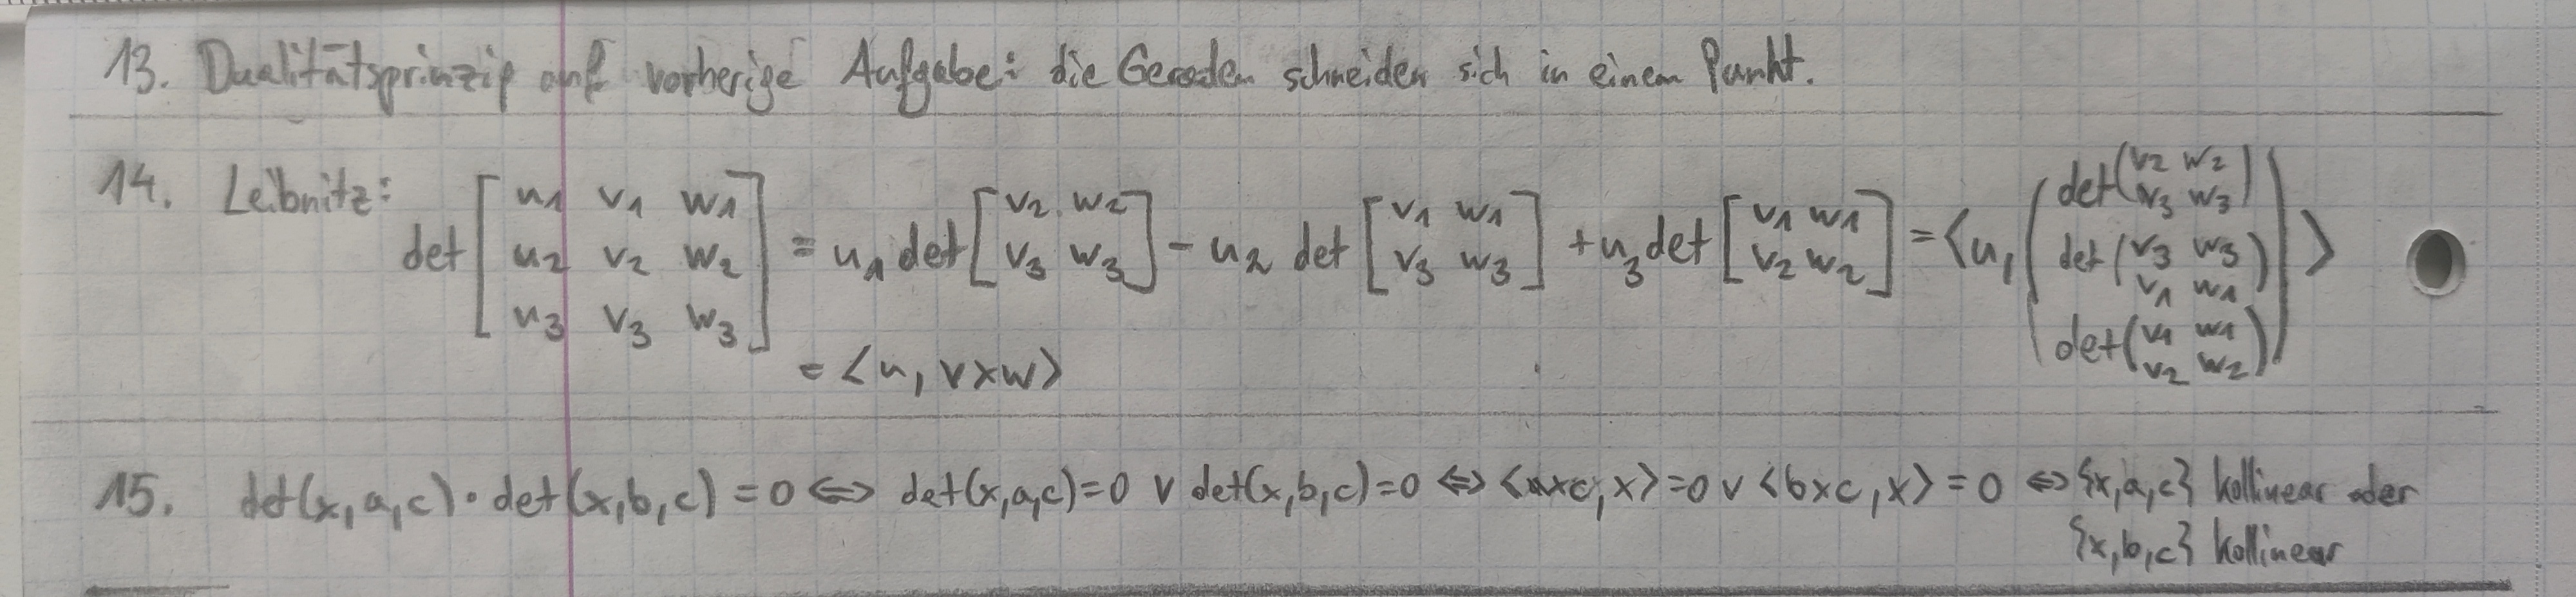 13. Dualitätsprinzip auf vorherige Aufgabe: die Geraden schneiden sich in einem Punkt.
14. Leibnitz:
det [ u1 v1 w1 ; u2 v2 w2 ; u3 v3 w3 ] = u1 det [ v2 w2 ; v3 w3 ] - u2 det [ v1 w1 ; v3 w3 ] + u3 det [ v1 w1 ; v2 w2 ] = <u, ( det( v2 w2 ; v3 w3 ) ; det( v3 w3 ; v1 w1 ) ; det( v1 w1 ; v2 w2 ) ) >
= <u, v×w>
15. det(x,a,c) · det(x,b,c) = 0 ⇔ det(x,a,c)=0 ∨ det(x,b,c)=0 ⇔ <a×c, x>=0 ∨ <b×c, x> = 0 ⇔ {x,a,c} kollinear oder
{x,b,c} kollinear